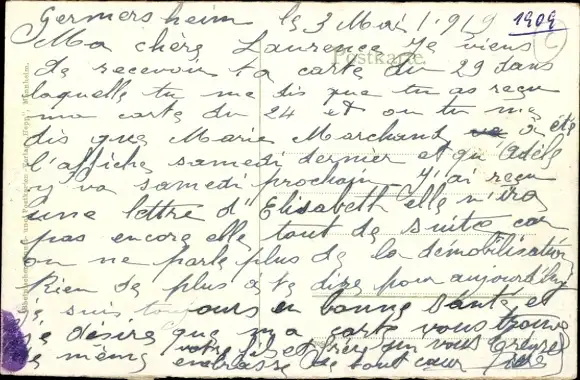 Germersheim le 3 Mai 1919
1909
Ma chère Laurence Je viens
Postkarte.
de recevoir ta carte du 29 dans
laquelle tu me dis que tu as reçu
ma carte du 24 et où tu me
dis que Marie Marchand a été
l'affiche samedi dernier et qu'Adèle
y va samedi prochain J'ai reçu
une lettre d'Elisabeth elle n'ira
pas encore elle tout de suite car
on ne parle plus de la démobilisation
Rien de plus à te dire pour aujourd'hui
je suis toujours en bonne santé et
je désire que ma carte vous trouve
de même votre fils et frère qui vous
embrasse de tout cœur